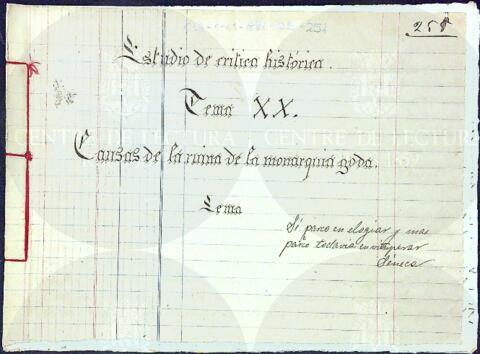 251
Estudio de crítica histórica.
Tema XX.
Causas de la ruina de la monarquia goda.
Lema
Sé parco en elogiar y mas
parco todavia en vituperar
Séneca
CENTRE DE LECTURA
CENTRE DE LECTURA
1859